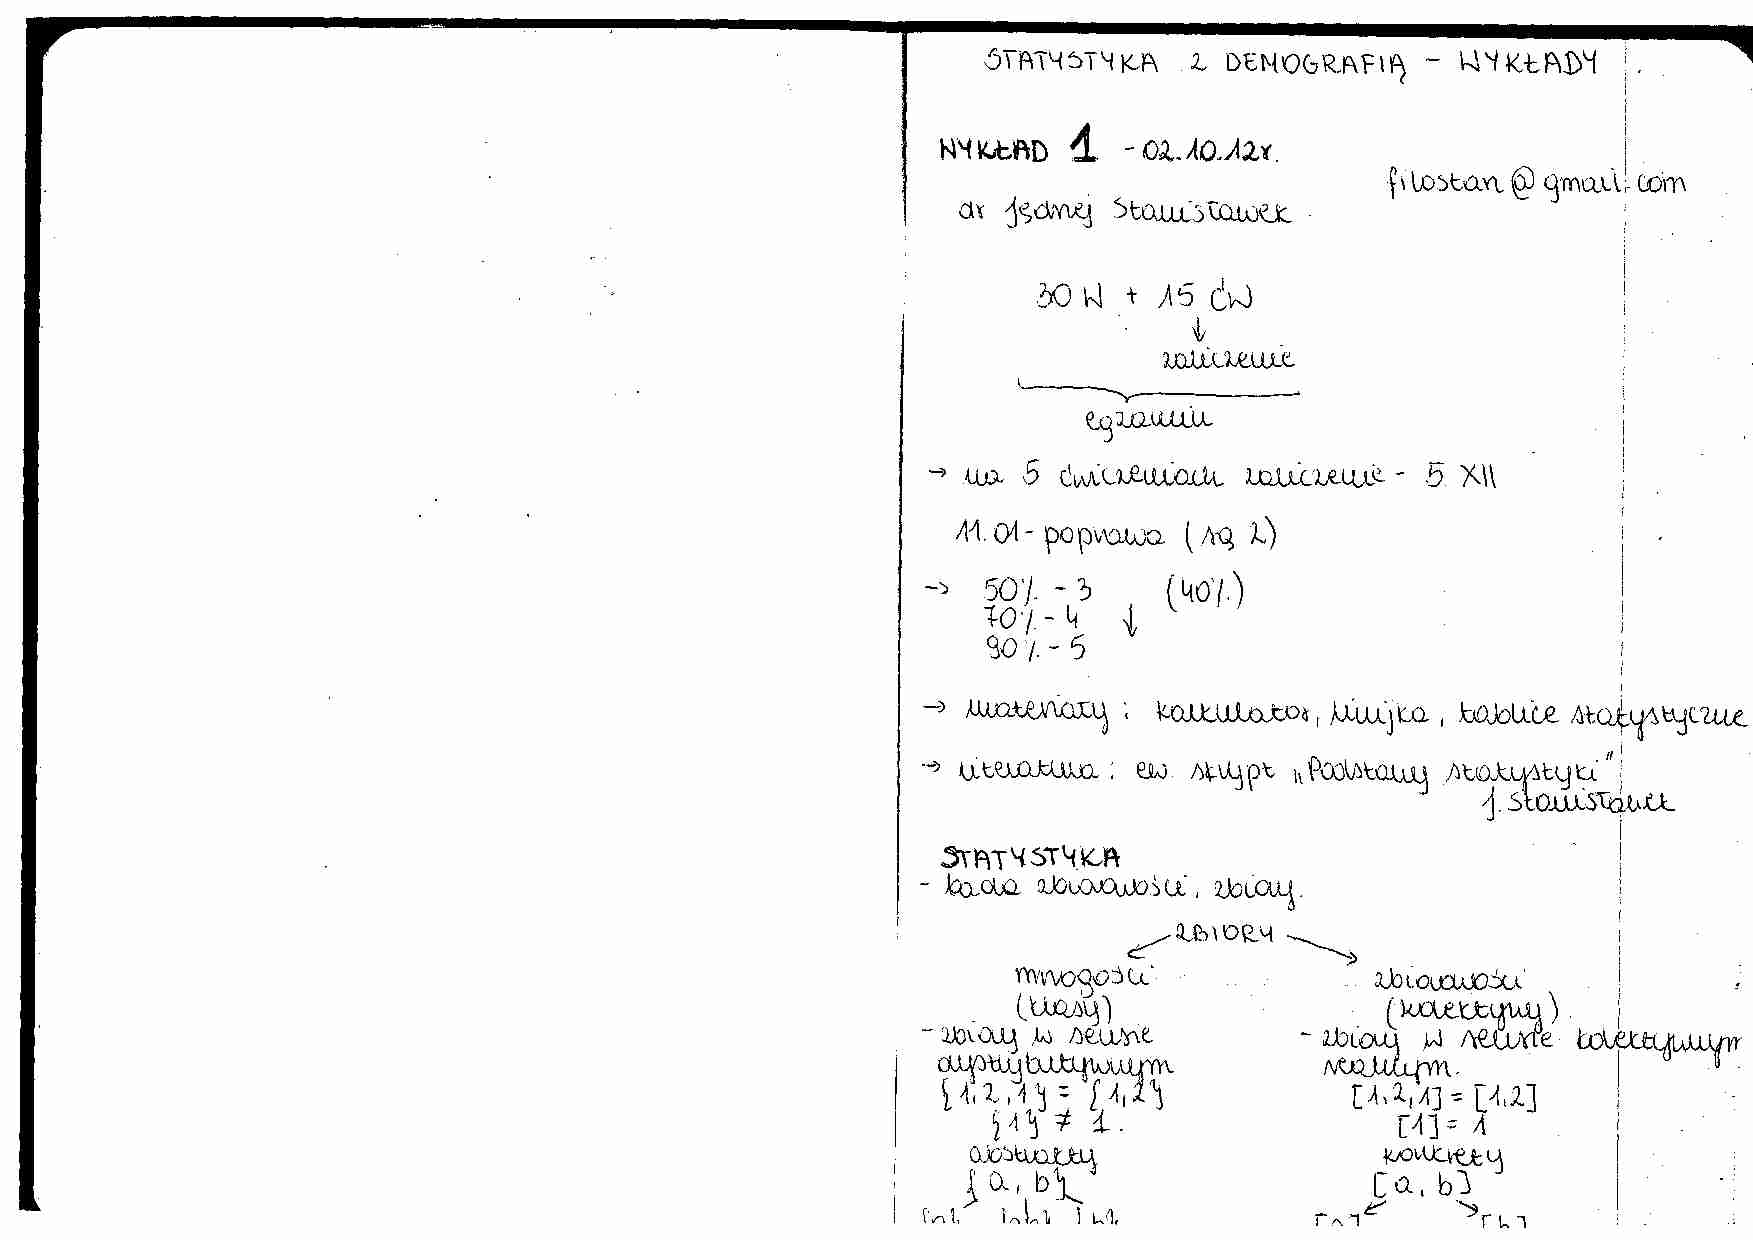 STATYSTYKA Z DEMOGRAFIĄ - WYKŁADY
WYKŁAD 1 - 02.10.12r.
filostan@gmail.com
dr Jędrzej Stanisławek
30 W + 15 ĆW
↓
zaliczenie
egzamin
→ na 5 ćwiczeniach zaliczenie - 5 XII
11.01 - poprawa (są 2)
→ 50% - 3 (40%)
70% - 4 ↓
90% - 5
→ materiały: kalkulator, linijka, tablice statystyczne
→ literatura: ew. skrypt „Podstawy statystyki"
J. Stanisławek
STATYSTYKA
- bada zbiorowości, zbiory.
ZBIORY
mnogości zbiorowości
(klasy) (kolektywy)
- zbiory w sensie - zbiory w sensie kolektywnym
dystrybutywnym realnym.
{1,2,1} = {1,2} [1,2,1] = [1,2]
{1} ≠ 1. [1] = 1
abstrakty konkrety
{a, b} [a, b]
{a} {a,b} {b} [a] [b]